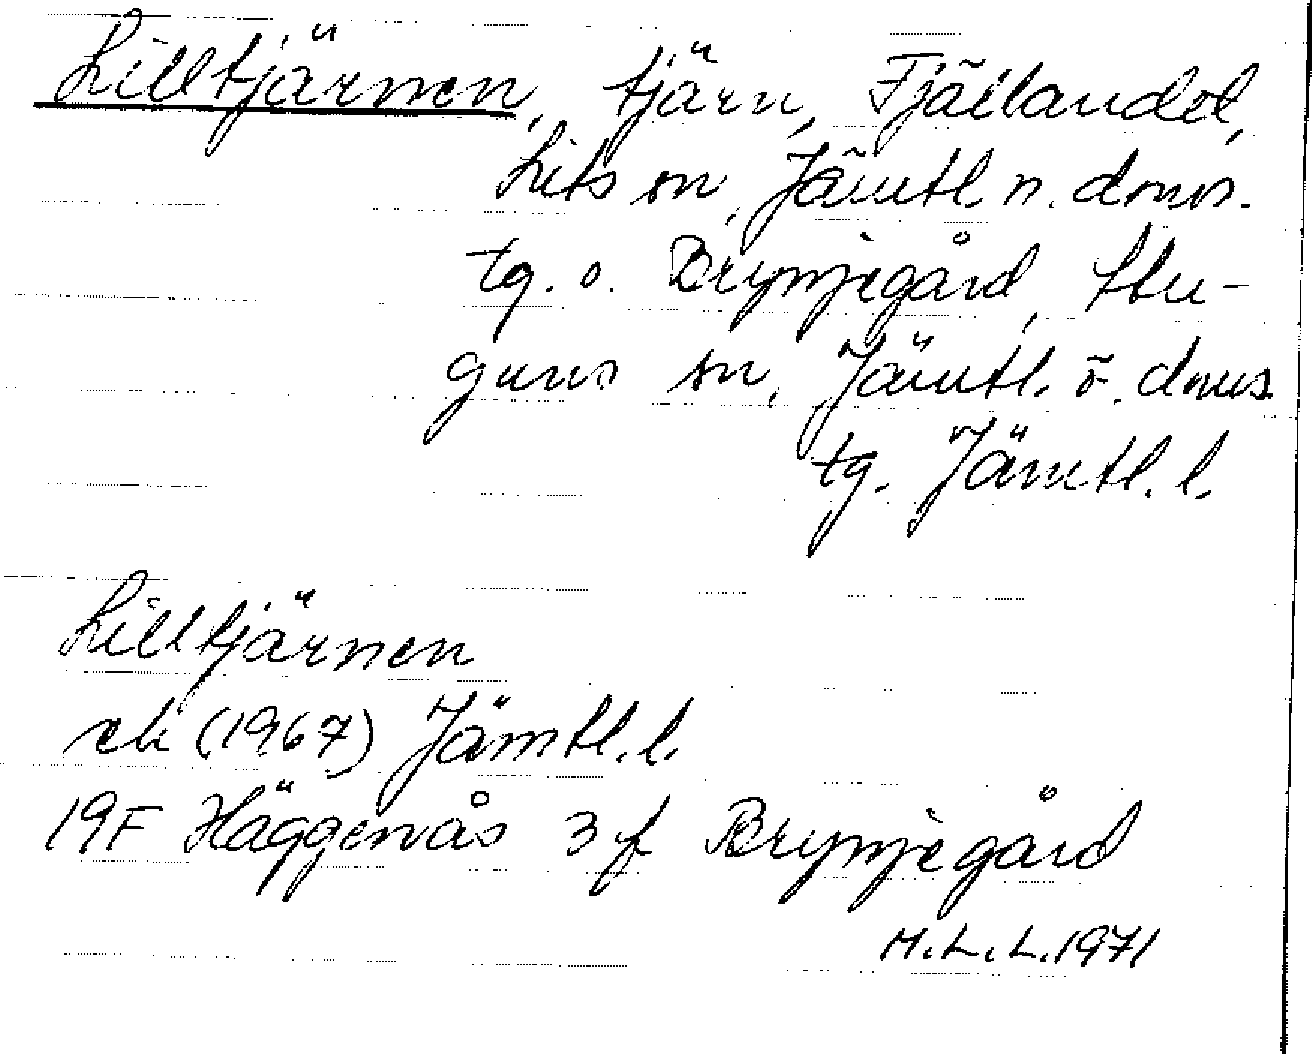 Lilltjärnen, tjärn, Fjällandet,
Lits sn, Jämtl. n. doms.
tg. o. Brynjegård, Stu-
guns sn, Jämtl. ö. doms
tg. Jämtl. l.
Lilltjärnen
ek (1967) Jämtl. l.
19F Häggenås 3f Brynjegård
M.L.L. 1971